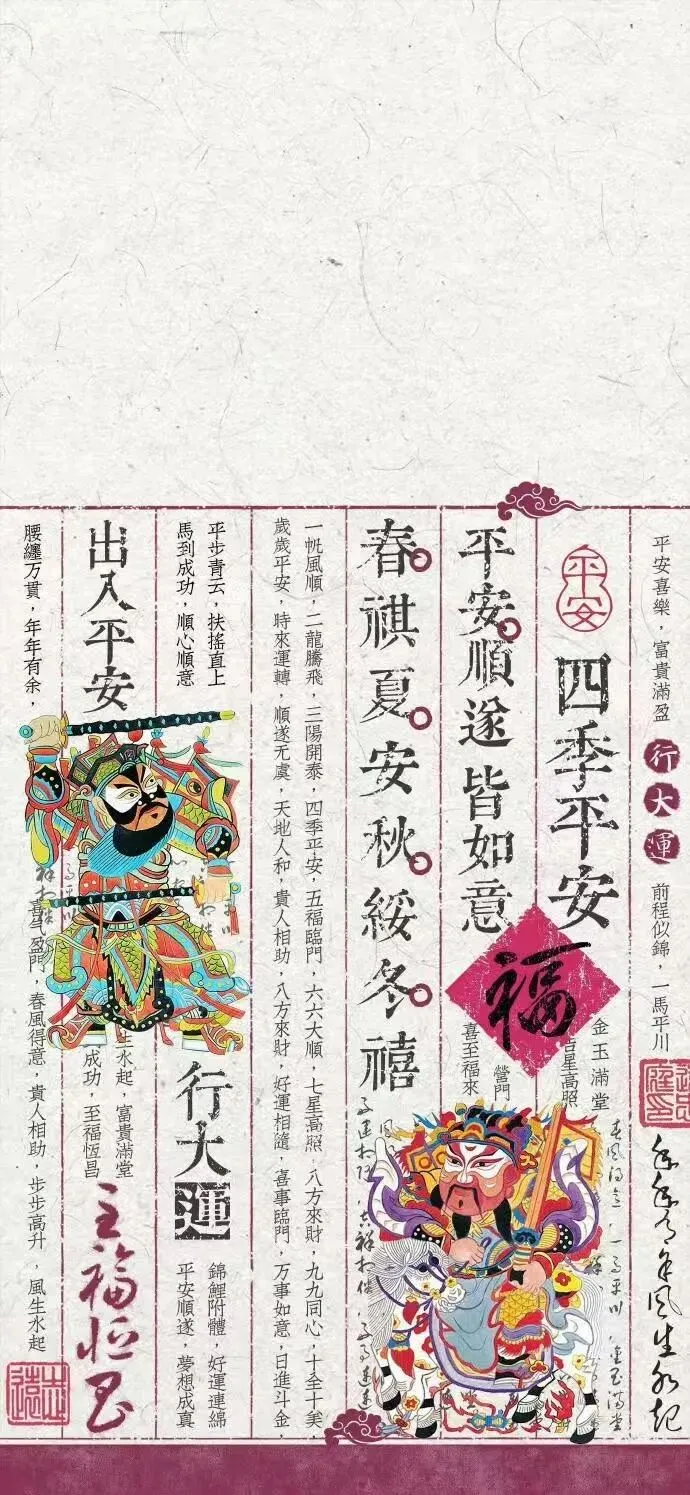 平安喜樂，富貴滿盈
行大運
前程似錦，一馬平川
年年有余風生水起
平安
四季平安
金玉滿堂
吉星高照
平安順遂皆如意
福
營門
喜至福來
春祺夏安秋綏冬禧
一帆風順，二龍騰飛，三陽開泰，四季平安，五福臨門，六六大順，七星高照，八方來財，九九同心，十全十美
歲歲平安，時來運轉，順遂无虞，天地人和，貴人相助，八方來財，好運相隨，喜事臨門，万事如意，日進斗金，
平步青云，扶搖直上
馬到成功，順心順意
行大運
錦鯉附體，好運連綿
平安順遂，夢想成真
出入平安
生水起，富貴滿堂
成功，至福恆昌
主福恒昌
腰纏万貫，年年有余，
喜气盈門，春風得意，貴人相助，步步高升，風生水起